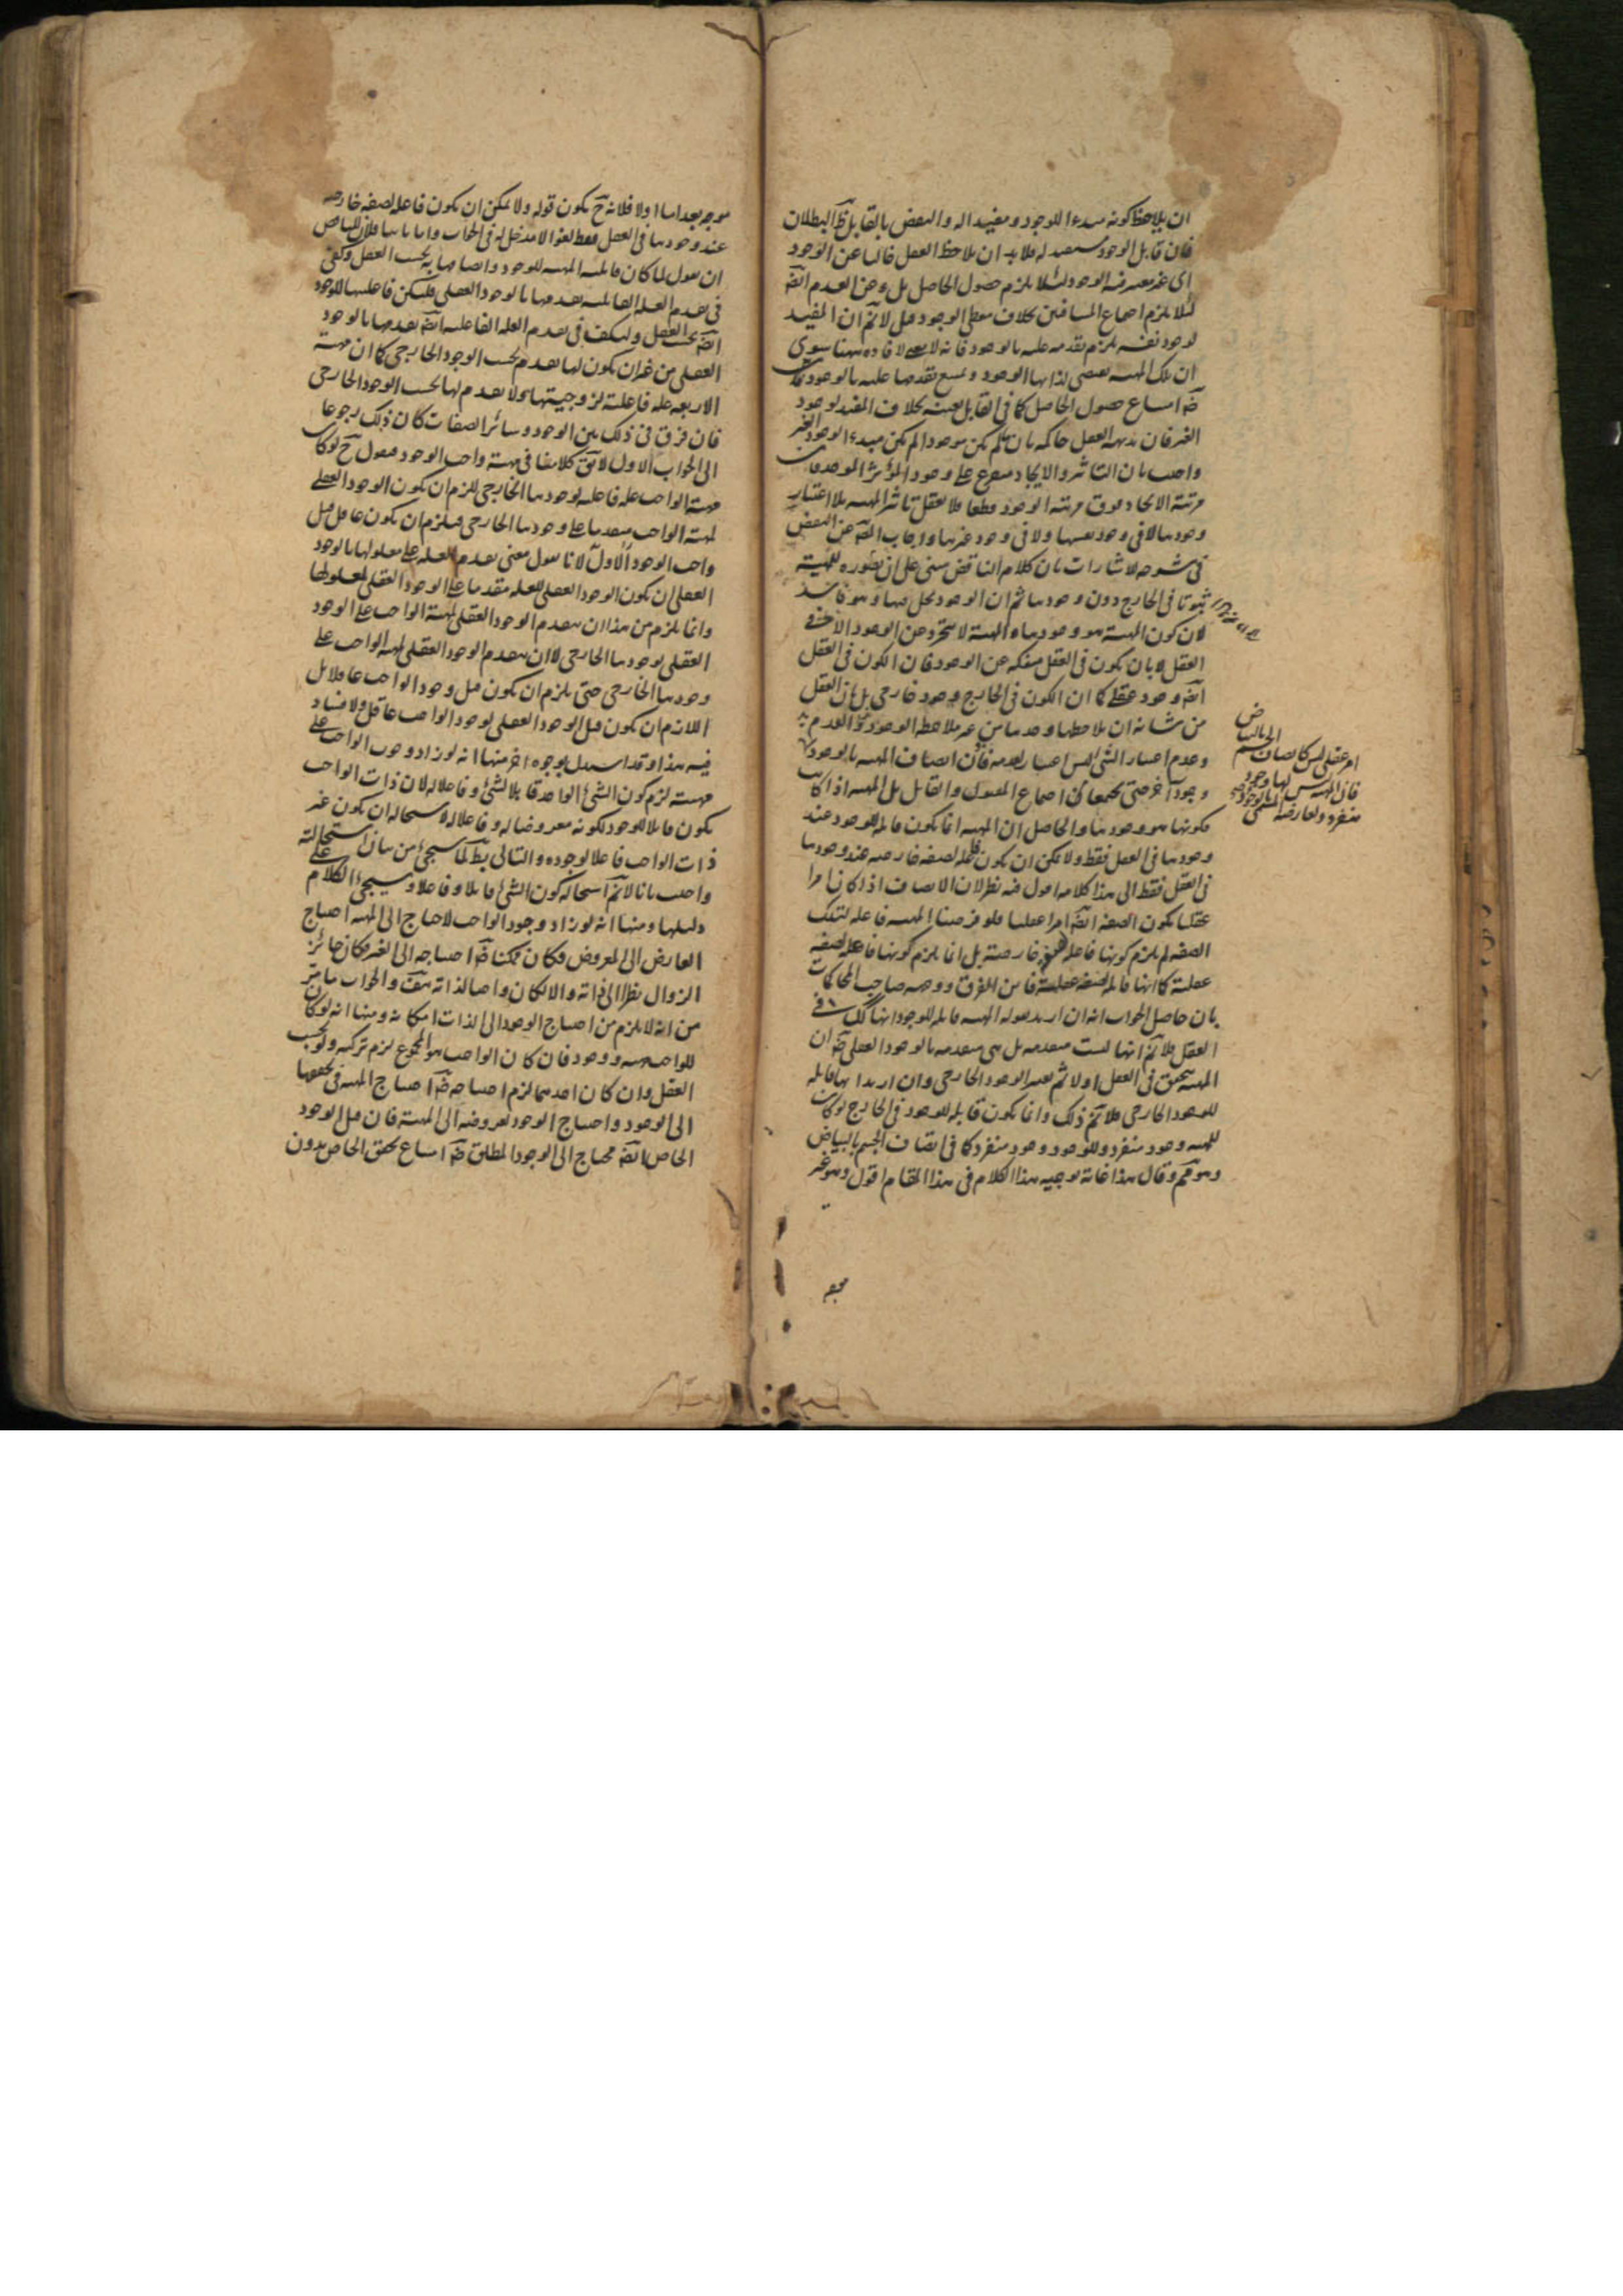 ان يلاحظ كونه مبدءا للوجود ومفيدا له والنقض بالقابل ظ البطلان
فان قابل الوجود مستفيد له فلا بد ان يلاحظ العقل خاليا عن الوجود
اى غير معتبر فيه الوجود لئلا يلزم حصول الحاصل بل وعن العدم ايضا
لئلا يلزم اجتماع المتنافيين بخلاف معطى الوجود فان قيل لا نم ان المفيد
لوجود نفسه يلزم تقدمه عليه بالوجود فانه لا معنى للافادة ههنا سوى
ان تلك المهية تقتضى لذاتها الوجود ويمتنع تقدمها عليه بالوجود
ضرورة امتناع حصول الحاصل كما فى القابل بعينه بخلاف المفيد لوجود
الغير فان بديهة العقل حاكمة بان ما لم يكن موجودا لم يكن مبدءا لوجود الغير
واجيب بان التاثير والايجاد متفرع على وجود المؤثر الموجد فان
مرتبة الايجاد فوق مرتبة الوجود قطعا فلا يعقل تاثير المهية بلا اعتبار
وجودها لا فى وجود نفسها ولا فى وجود غيرها واجاب المص عن النقض
فى شرحه للاشارات بان كلام الناقض مبنى على ان تصوره للمهية
ثبوتا فى الخارج دون وجودها ثم ان الوجود يحل فيها وهو فاسد
لان كون المهية هو وجودها والمهية لا تتجرد عن الوجود الا فى
العقل لا بان يكون فى العقل منفكة عن الوجود فان الكون فى العقل
ايضا وجود عقلى كما ان الكون فى الخارج وجود خارجى بل بان العقل
من شانه ان يلاحظها وحدها من غير ملاحظة الوجود او العدم
وعدم اعتبار الشئ ليس اعتبارا لعدمه فاذن اتصاف المهية بالوجود
امر عقلى ليس كاتصاف الجسم بالبياض
فان المهية ليس لها وجود
منفرد ولعارضه المسمى بالوجود
وجود آخر حتى يجتمعا اجتماع المقبول والقابل بل المهية اذا كانت
فكونها هو وجودها والحاصل ان المهية انما يكون قابلة للوجود عند
وجودها فى العقل فقط ولا يمكن ان يكون فاعلة لصفة خارجية عند وجودها
فى العقل فقط الى هنا كلامه اقول فيه نظر لان الاتصاف اذا كان امرا
عقليا يكون الصفة ايضا امرا عقليا فلو فرضنا المهية فاعلة لتلك
الصفة لم يلزم كونها فاعلة لصفة خارجية بل انما يلزم كونها فاعلة لصفة
عقلية كما انها قابلة لصفة عقلية فاين الفرق ووجهه صاحب المحاكمات
بان حاصل الجواب انه ان اريد بقوله المهية قابلة للوجود انها كك فى
العقل فلا نم انها ليست متقدمة بل هى متقدمة بالوجود العقلى ضرورة ان
المهية تتحقق فى العقل اولا ثم يعتبر الوجود الخارجى وان اريد انها قابلة
للوجود الخارجى فلا نم ذلك وانما يكون قابلة للوجود فى الخارج لو كان
للمهية وجود منفرد وللوجود وجود منفرد كما فى اتصاف الجسم بالبياض
وهو مم وقال هذا غاية توجيه هذا الكلام فى هذا المقام اقول وهو غير
موجه بعد اما اولا فلانه ح يكون قوله ولا يمكن ان يكون فاعلة لصفة خارجية
عند وجودها فى العقل فقط لغوا لا مدخل له فى الجواب واما ثانيا فلان للناقض
ان يقول لما كان قابلية المهية للوجود واتصافها به بحسب العقل وكفى
فى تقدم العلة القابلية تقدمها بالوجود العقلى فليكن فاعليتها للوجود
ايضا بحسب العقل وليكف فى تقدم العلة الفاعلية ايضا تقدمها بالوجود
العقلى من غير ان يكون لها تقدم بحسب الوجود الخارجى كما ان مهية
الاربعة علة فاعلية لزوجيتها ولا تقدم لها بحسب الوجود الخارجى
فان فرق فى ذلك بين الوجود وسائر الصفات كان ذلك رجوعا
الى الجواب الاول لا يق كلامنا فى مهية واجب الوجود فنقول ح لو كان
مهية الواجب علة فاعلية لوجودها الخارجى للزم ان يكون الوجود العقلى
لمهية الواجب متقدما على وجودها الخارجى فيلزم ان يكون عاقل قبل
واجب الوجود الاول لانا نقول معنى تقدم العلة على معلولها بالوجود
العقلى ان يكون الوجود العقلى للعلة مقدما على الوجود العقلى لمعلولها
وانما يلزم من هذا ان يتقدم الوجود العقلى لمهية الواجب على الوجود
العقلى لوجودها الخارجى لا ان يتقدم الوجود العقلى لمهية الواجب على
وجودها الخارجى حتى يلزم ان يكون قبل وجود الواجب عاقلا بل
اللازم ان يكون قبل الوجود العقلى لوجود الواجب عاقل ولا فساد
فيه هذا وقد استدل بوجوه اخر منها انه لو زاد وجوب الواجب على
مهيته لزم كون الشئ الواحد قابلا لشئ وفاعلا له لان ذات الواجب
يكون قابلا للوجود لكونه معروضا له وفاعلا له لاستحالة ان يكون غير
ذات الواجب فاعلا لوجوده والتالى بط لما سيجئ من بيان استحالته
واجيب بانا لا نم استحالة كون الشئ قابلا وفاعلا وسيجئ الكلام على
دليلها ومنها انه لو زاد وجود الواجب لاحتاج الى المهية احتياج
العارض الى المعروض فكان ممكنا ضرورة احتياجه الى الغير فكان جائز
الزوال نظرا الى ذاته والا لكان واجبا لذاته هف والجواب ما مر
من انه لا يلزم من احتياج الوجود الى الذات امكانه ومنها انه لو كان
للواجب مهية ووجود فان كان الواجب هو المجموع لزم تركبه ولو بحسب
العقل وان كان احدهما لزم احتياجه ضرورة احتياج المهية فى تحققها
الى الوجود واحتياج الوجود لعروضه الى المهية فان قيل الوجود
الخاص ايضا محتاج الى الوجود المطلق ضرورة امتناع تحقق الخاص بدون